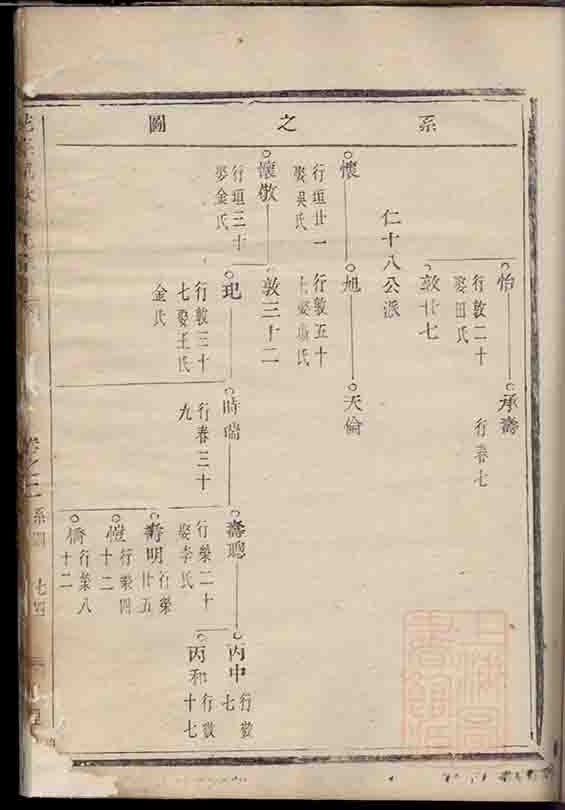 系之圖
怡
行敦二十
娶田氏
承壽
行春七
敦廿七
仁十八公派
懷
行垣廿一
娶吳氏
旭
行敦五十
天倫
懷敬
行垣三十
娶金氏
敦三十二
玘
行敦三十
七娶王氏
金氏
時瑞
行春三十
九
壽聰
行榮二十
娶李氏
丙中
行敬
七
丙和
行敬
十七
壽明
行榮
廿五
愷
行榮四
十二
行榮八
十二
卷之二
系圖
七四